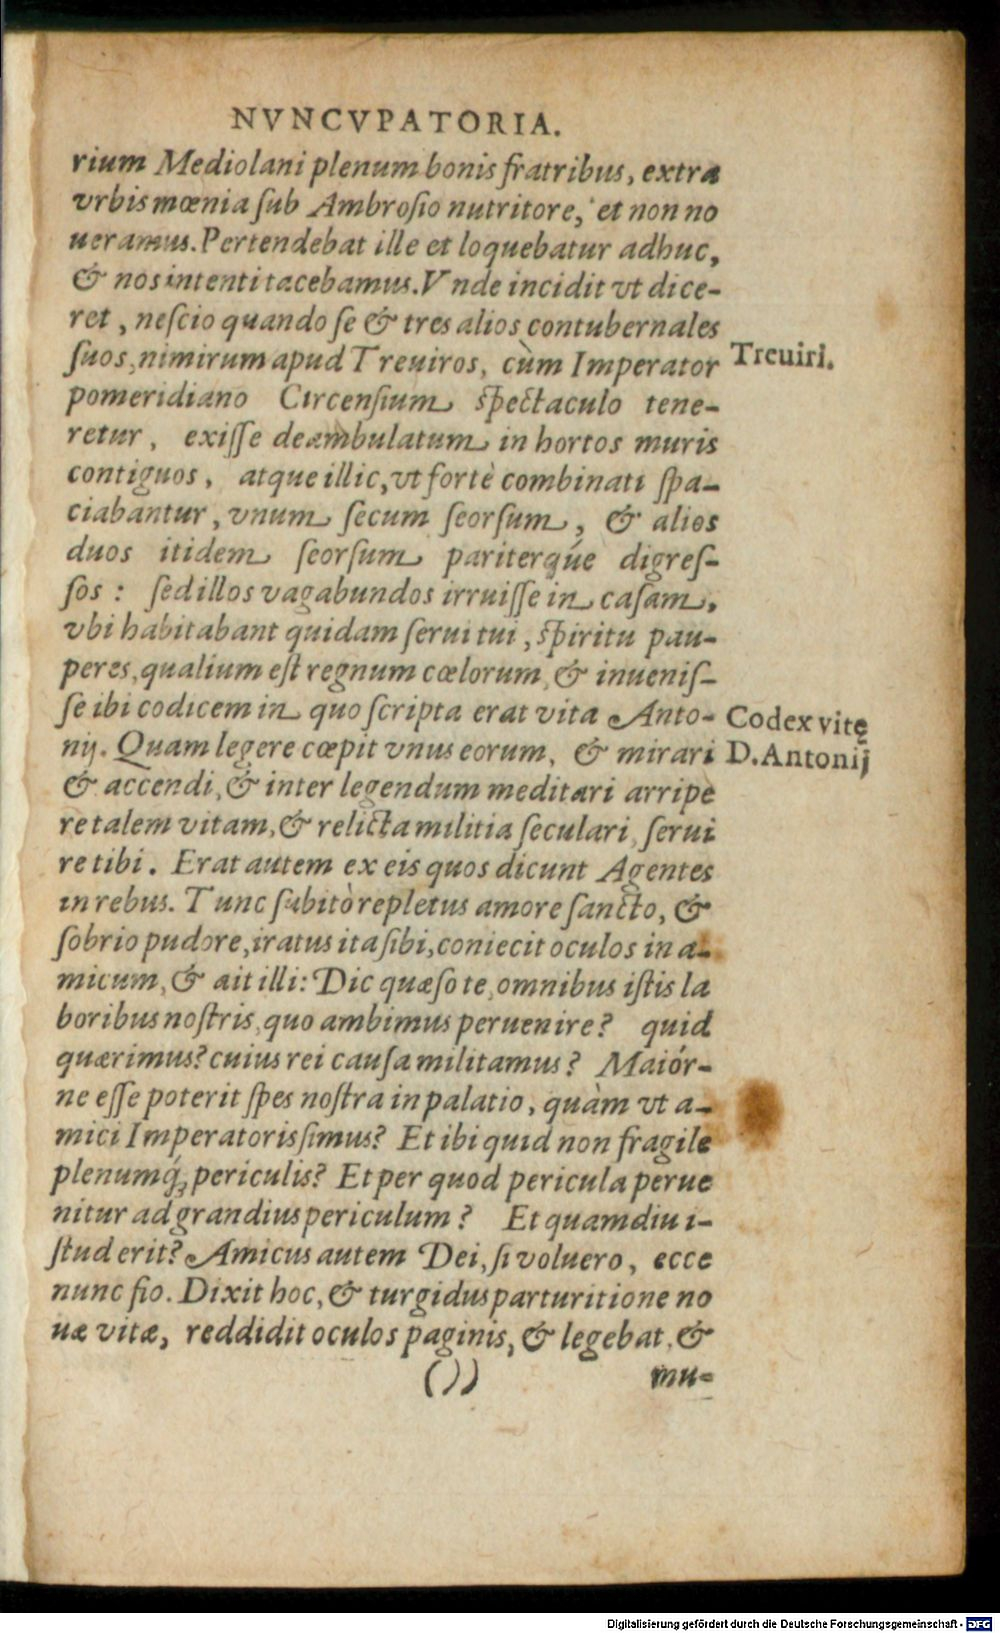 NVNCVPATORIA.
rium Mediolani plenum bonis fratribus, extra
vrbis mœnia ſub Ambroſio nutritore, et non no
ueramus. Pertendebat ille et loquebatur adhuc,
& nos intenti tacebamus. Vnde incidit vt dice-
ret, neſcio quando ſe & tres alios contubernales
ſuos, nimirum apud Treuiros, cùm Imperator
Treuiri.
pomeridiano Circenſium ſpectaculo tene-
retur, exiſſe deambulatum in hortos muris
contiguos, atque illic, vt fortè combinati ſpa-
ciabantur, vnum ſecum ſeorſum, & alios
duos itidem ſeorſum pariterqúe digreſ-
ſos: ſed illos vagabundos irruiſſe in caſam,
vbi habitabant quidam ſerui tui, ſpiritu pau-
peres, qualium eſt regnum cœlorum, & inueniſ-
ſe ibi codicem in quo ſcripta erat vita Anto-
Codex vitę
nij. Quam legere cœpit vnus eorum, & mirari
D. Antonij
& accendi, & inter legendum meditari arripe
re talem vitam, & relicta militia ſeculari, ſerui
re tibi. Erat autem ex eis quos dicunt Agentes
in rebus. Tunc ſubitò repletus amore ſancto, &
ſobrio pudore, iratus ita ſibi, coniecit oculos in a-
micum, & ait illi: Dic quæſo te, omnibus iſtis la
boribus noſtris, quo ambimus peruenire? quid
quærimus? cuius rei cauſa militamus? Maiór-
ne eſſe poterit ſpes noſtra in palatio, quàm vt a-
mici Imperatoris ſimus? Et ibi quid non fragile
plenumq́; periculis? Et per quod pericula perue
nitur ad grandius periculum? Et quamdiu i-
ſtud erit? Amicus autem Dei, ſi voluero, ecce
nunc fio. Dixit hoc, & turgidus parturitione no
uæ vitæ, reddidit oculos paginis, & legebat, &
( ) )
mu-
Digitalisierung gefördert durch die Deutsche Forschungsgemeinschaft - DFG